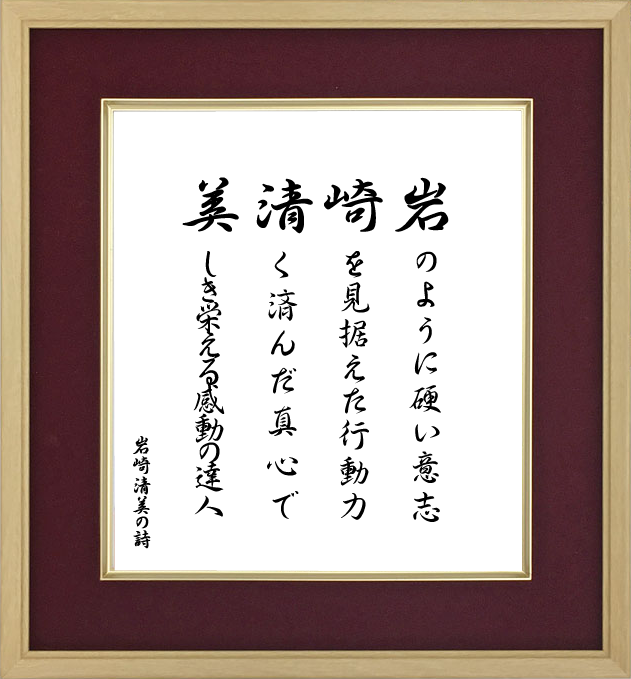 岩のように硬い意志
崎を見据えた行動力
清く済んだ真心で
美しき栄える感動の達人
岩崎清美の詩